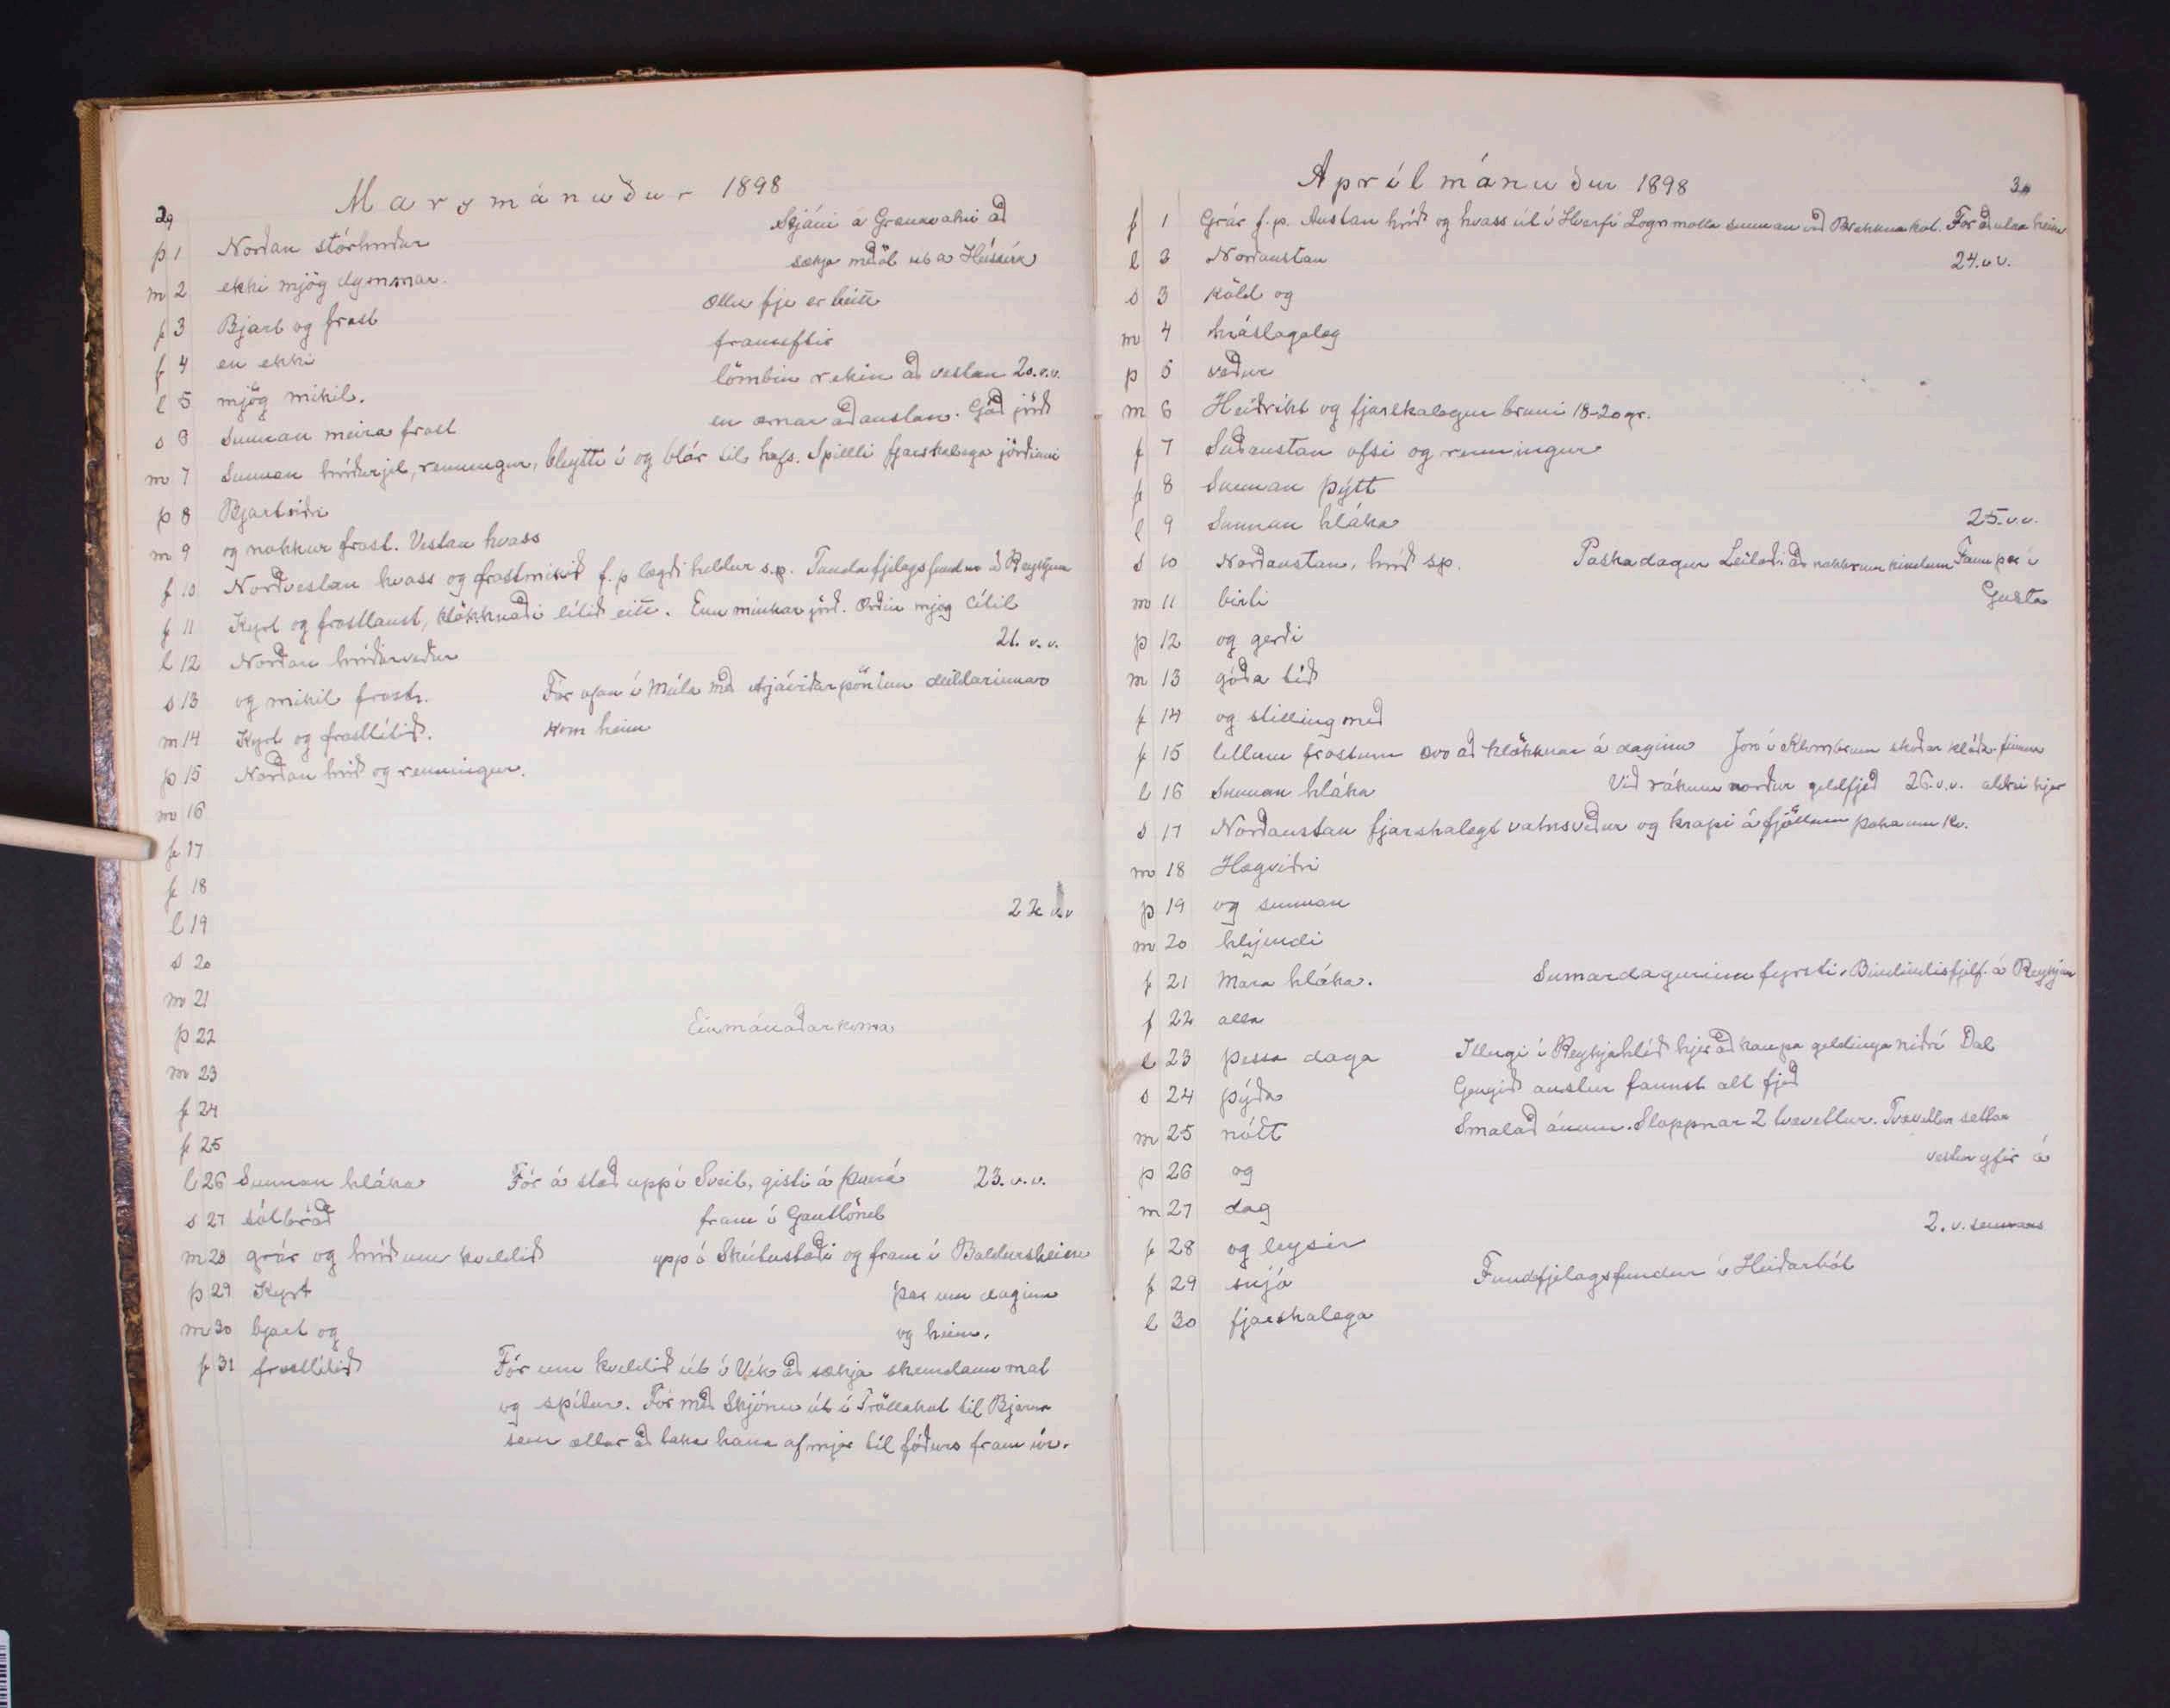 29
Marsmánuður 1898
þ 1 Norðan stórhríðar Stjáni á Granavatni að
m 2 ekki mjög dymmar. sækja meðöl út á Húsavík
f 3 Bjart og frost Öllu fje er beitt
f 4 en ekki frameftir
l 5 mjög mikil. lömbin rekin að vestan 20.v.v.
s 6 Sunnan meira frost en ærnar að austan. Góð jörð
m 7 Sunnan hríðarjel, renningur, bleytti í og blés til hafs. Spillti fjarskalega jörðinni
þ 8 Bjartviðri
m 9 og nokkur frost. Vestan hvass
f 10 Norðvestan hvass og frostmikið f.p lægði heldur s.p. fjelagsfundur á Reykjum
f 11 Kyrt og frostlaust, klökknaði lítið eitt. Enn minkar jörð. Orðin mjög lítil
l 12 Norðan hríðarveður 21. v.v.
s 13 og mikil frost. Fór ofan í Múla með pöntun deildarinnar
m 14 Kyrt og frostlítið. Kom heim
þ 15 Norðan hríð og renningur.
m 16
f 17
f 18
l 19 22 v.v
s 20
m 21
þ 22 Einmánaðarkoma
m 23
f 24
f 25
l 26 Sunnan hláka Fór á stað upp í Sveit, gisti á Þverá 23.v.v.
s 27 sólbráð fram í Gautlönd
m 28 grár og hríð um kveldið upp á Skútustaði og fram í Baldursheim
þ 29 Kyrt þar um daginn
m 30 bjart og og heim.
f 31 frostlítið Fór um kveldið út í Vík að sækja skemdann mat
og spítur. Fór með Skjónu út í Tröllakot til Bjarna
sem ætlar að taka hana af mjer til fóðurs fram úr.
Aprílmánuður 1898
30
f 1 Grár f.p. Austan hríð og hvass út í Hverfi Logn molla sunnan við Brekknakot. Fór að utan heim
l 2 Norðaustan 24.v.v.
s 3 köld og
m 4 hráslagaleg
þ 5 veður
m 6 Heiðríkt og fjarskalegur bruni 18-20 gr.
f 7 Suðaustan ofsi og renningur
f 8 Sunnan þýtt
l 9 Sunnan hláka 25.v.v.
s 10 Norðaustan, hríð sp. Páskadagur Leitaði að nokkrum kindum Fann þær í
m 11 birti
þ 12 og gerði
m 13 góða tíð
f 14 og stilling með
f 15 litlum frostum svo að klökknar á daginn
l 16 Sunnan hláka Við rákum norður geldfjeð 26.v.v.
s 17 Norðaustan fjarskalegt vatnsveður og krapi á fjöllum þoka um kv.
m 18 Hægviðri
þ 19 og sunnan
m 20 hlýindi
f 21 Mara hláka. Sumardagurinn fyrsti. Bindindisfjelf. á Reykjum
f 22 alla
l 23 þessa daga Illugi í Reykjahlíð hjer að kaupa geldinga niðrí Dal
s 24 þýða Gengið austur fannst allt fjeð
m 25 nótt Smalað ánum. Sloppnar 2 tvævetlur. Tvævetlur settar
þ 26 og vestur yfir á
m 27 dag
f 28 og leysir 2. v. sumars
f 29 snjó fjelagsfundur í Heiðarbót
l 30 fjarskalega